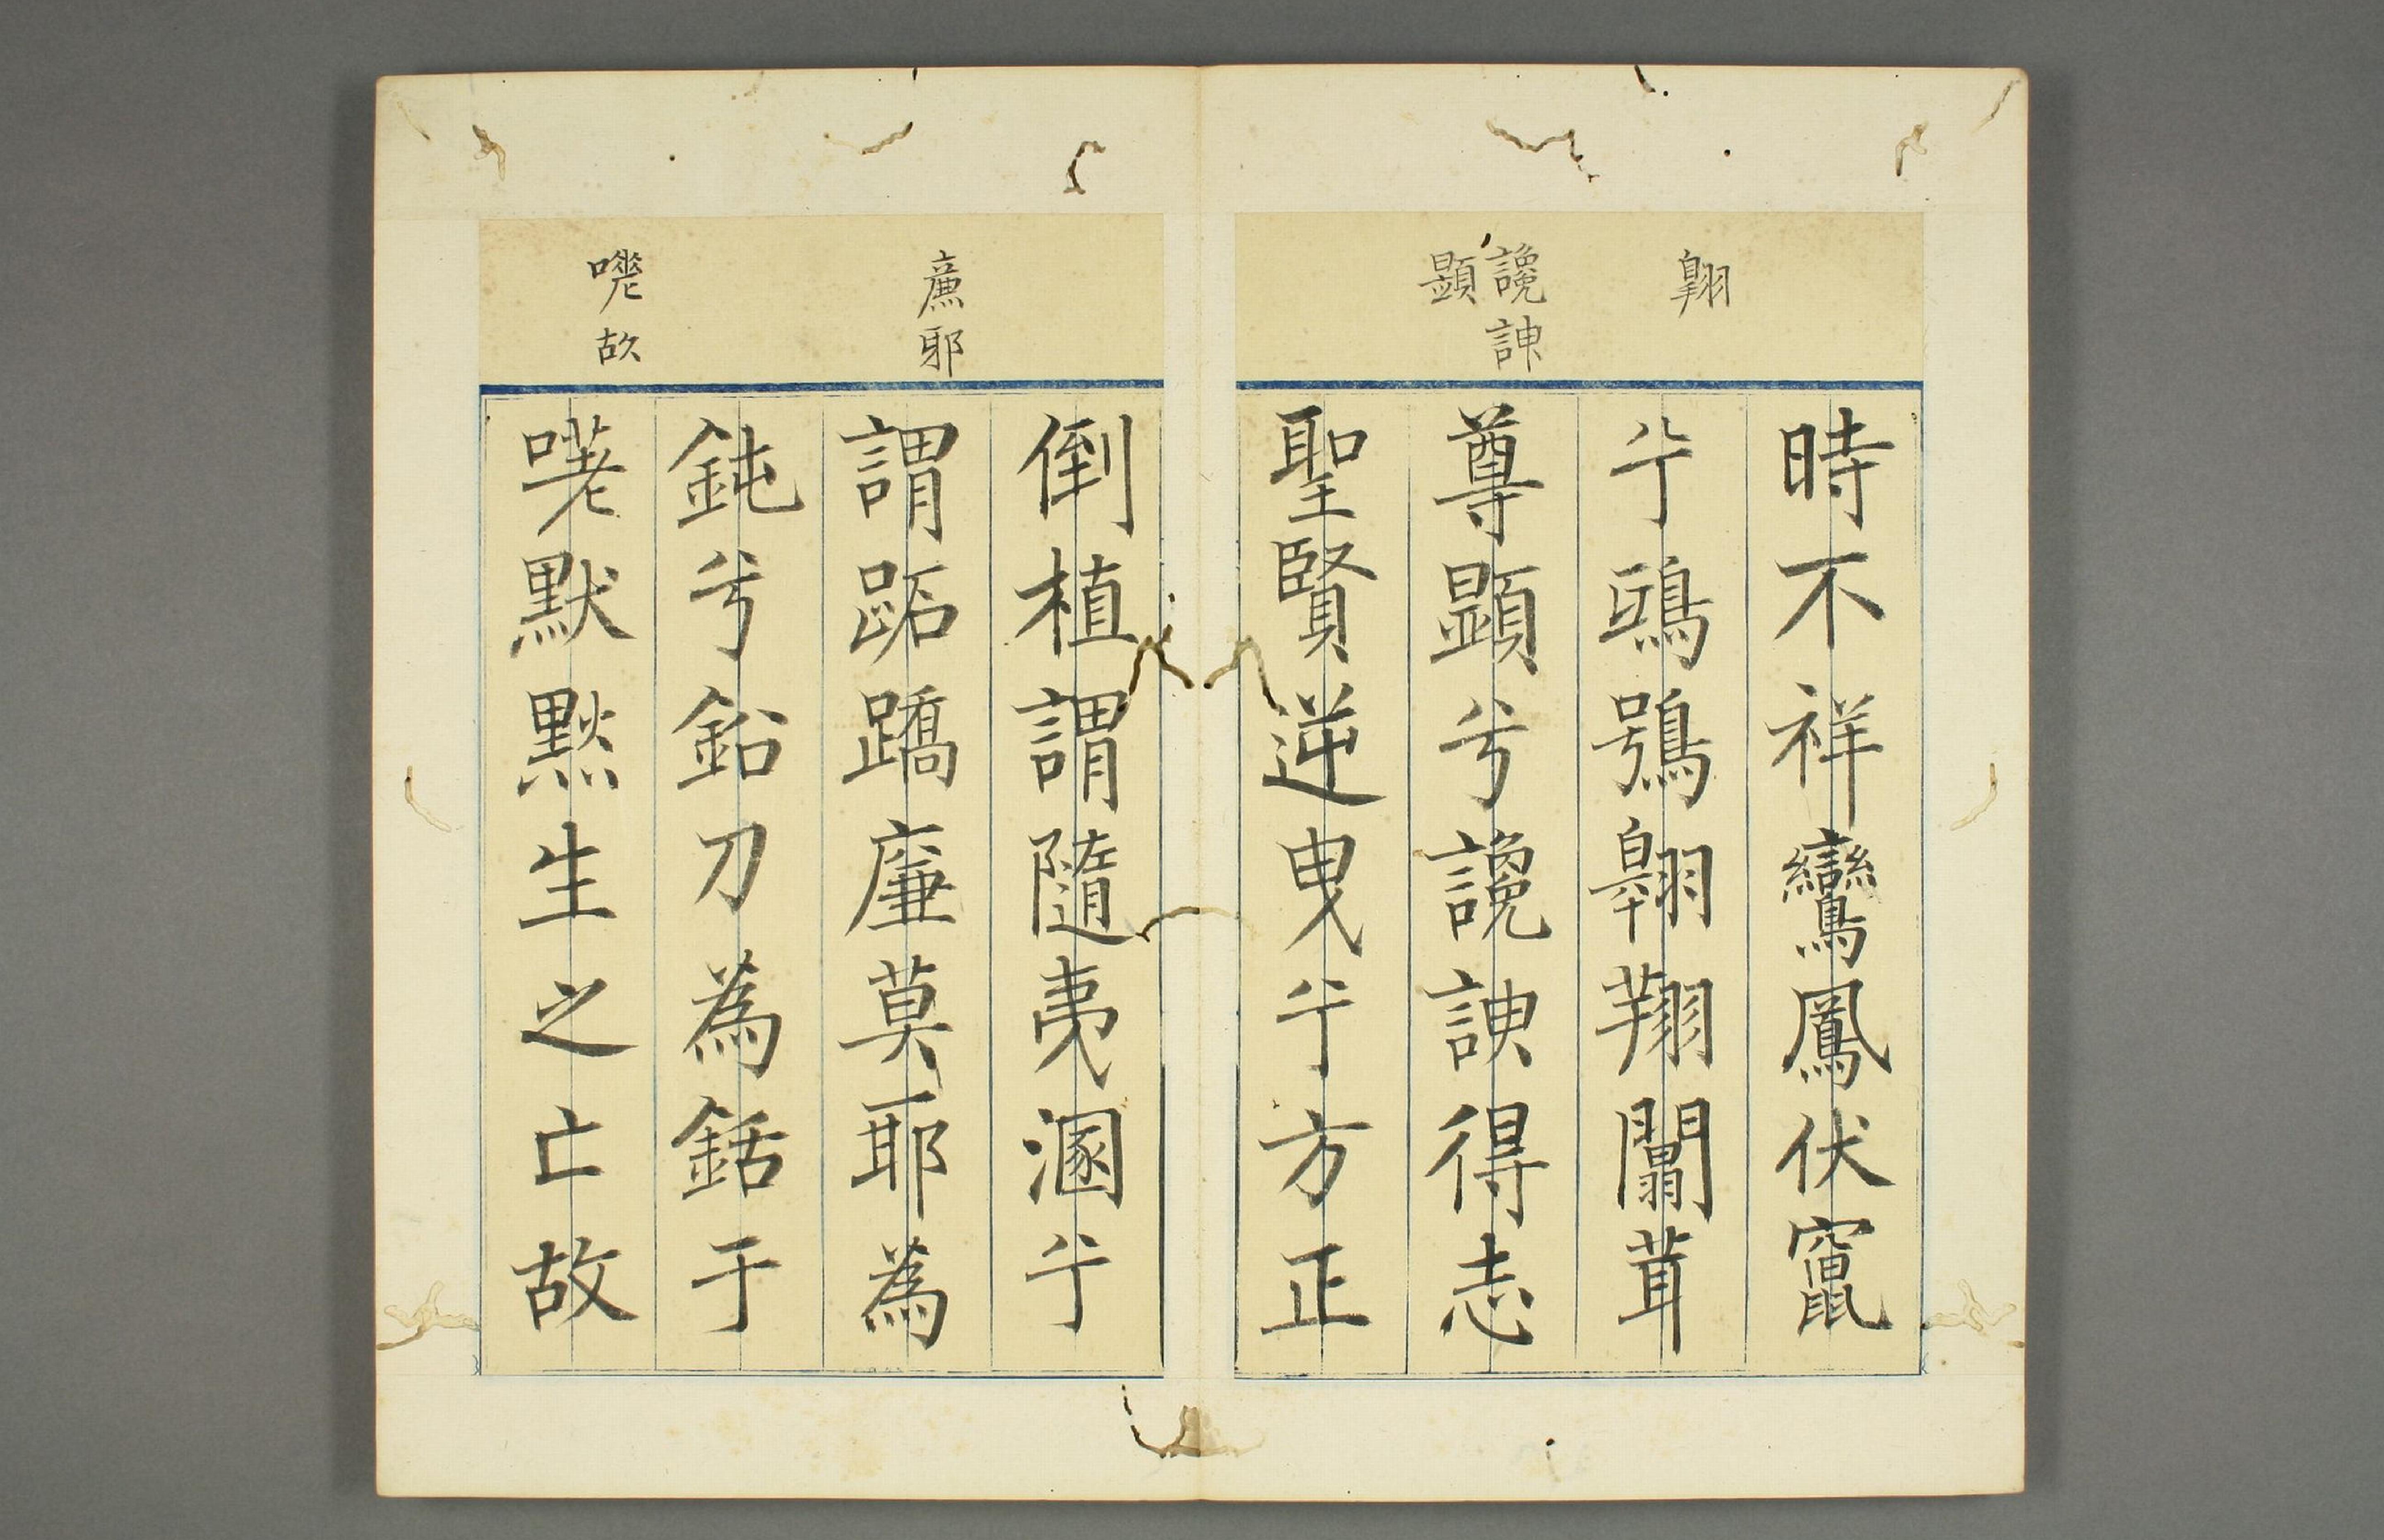 翶
讒諛
顯
廉邪
嗟故
時不祥鸞鳳伏竄
兮鴟鴞翶翔闒茸
尊顯兮讒諛得志
聖賢逆曳兮方正
倒植謂隨夷溷兮
謂跖蹻廉莫耶為
鈍兮鉛刀為銛于
嗟默默生之亡故